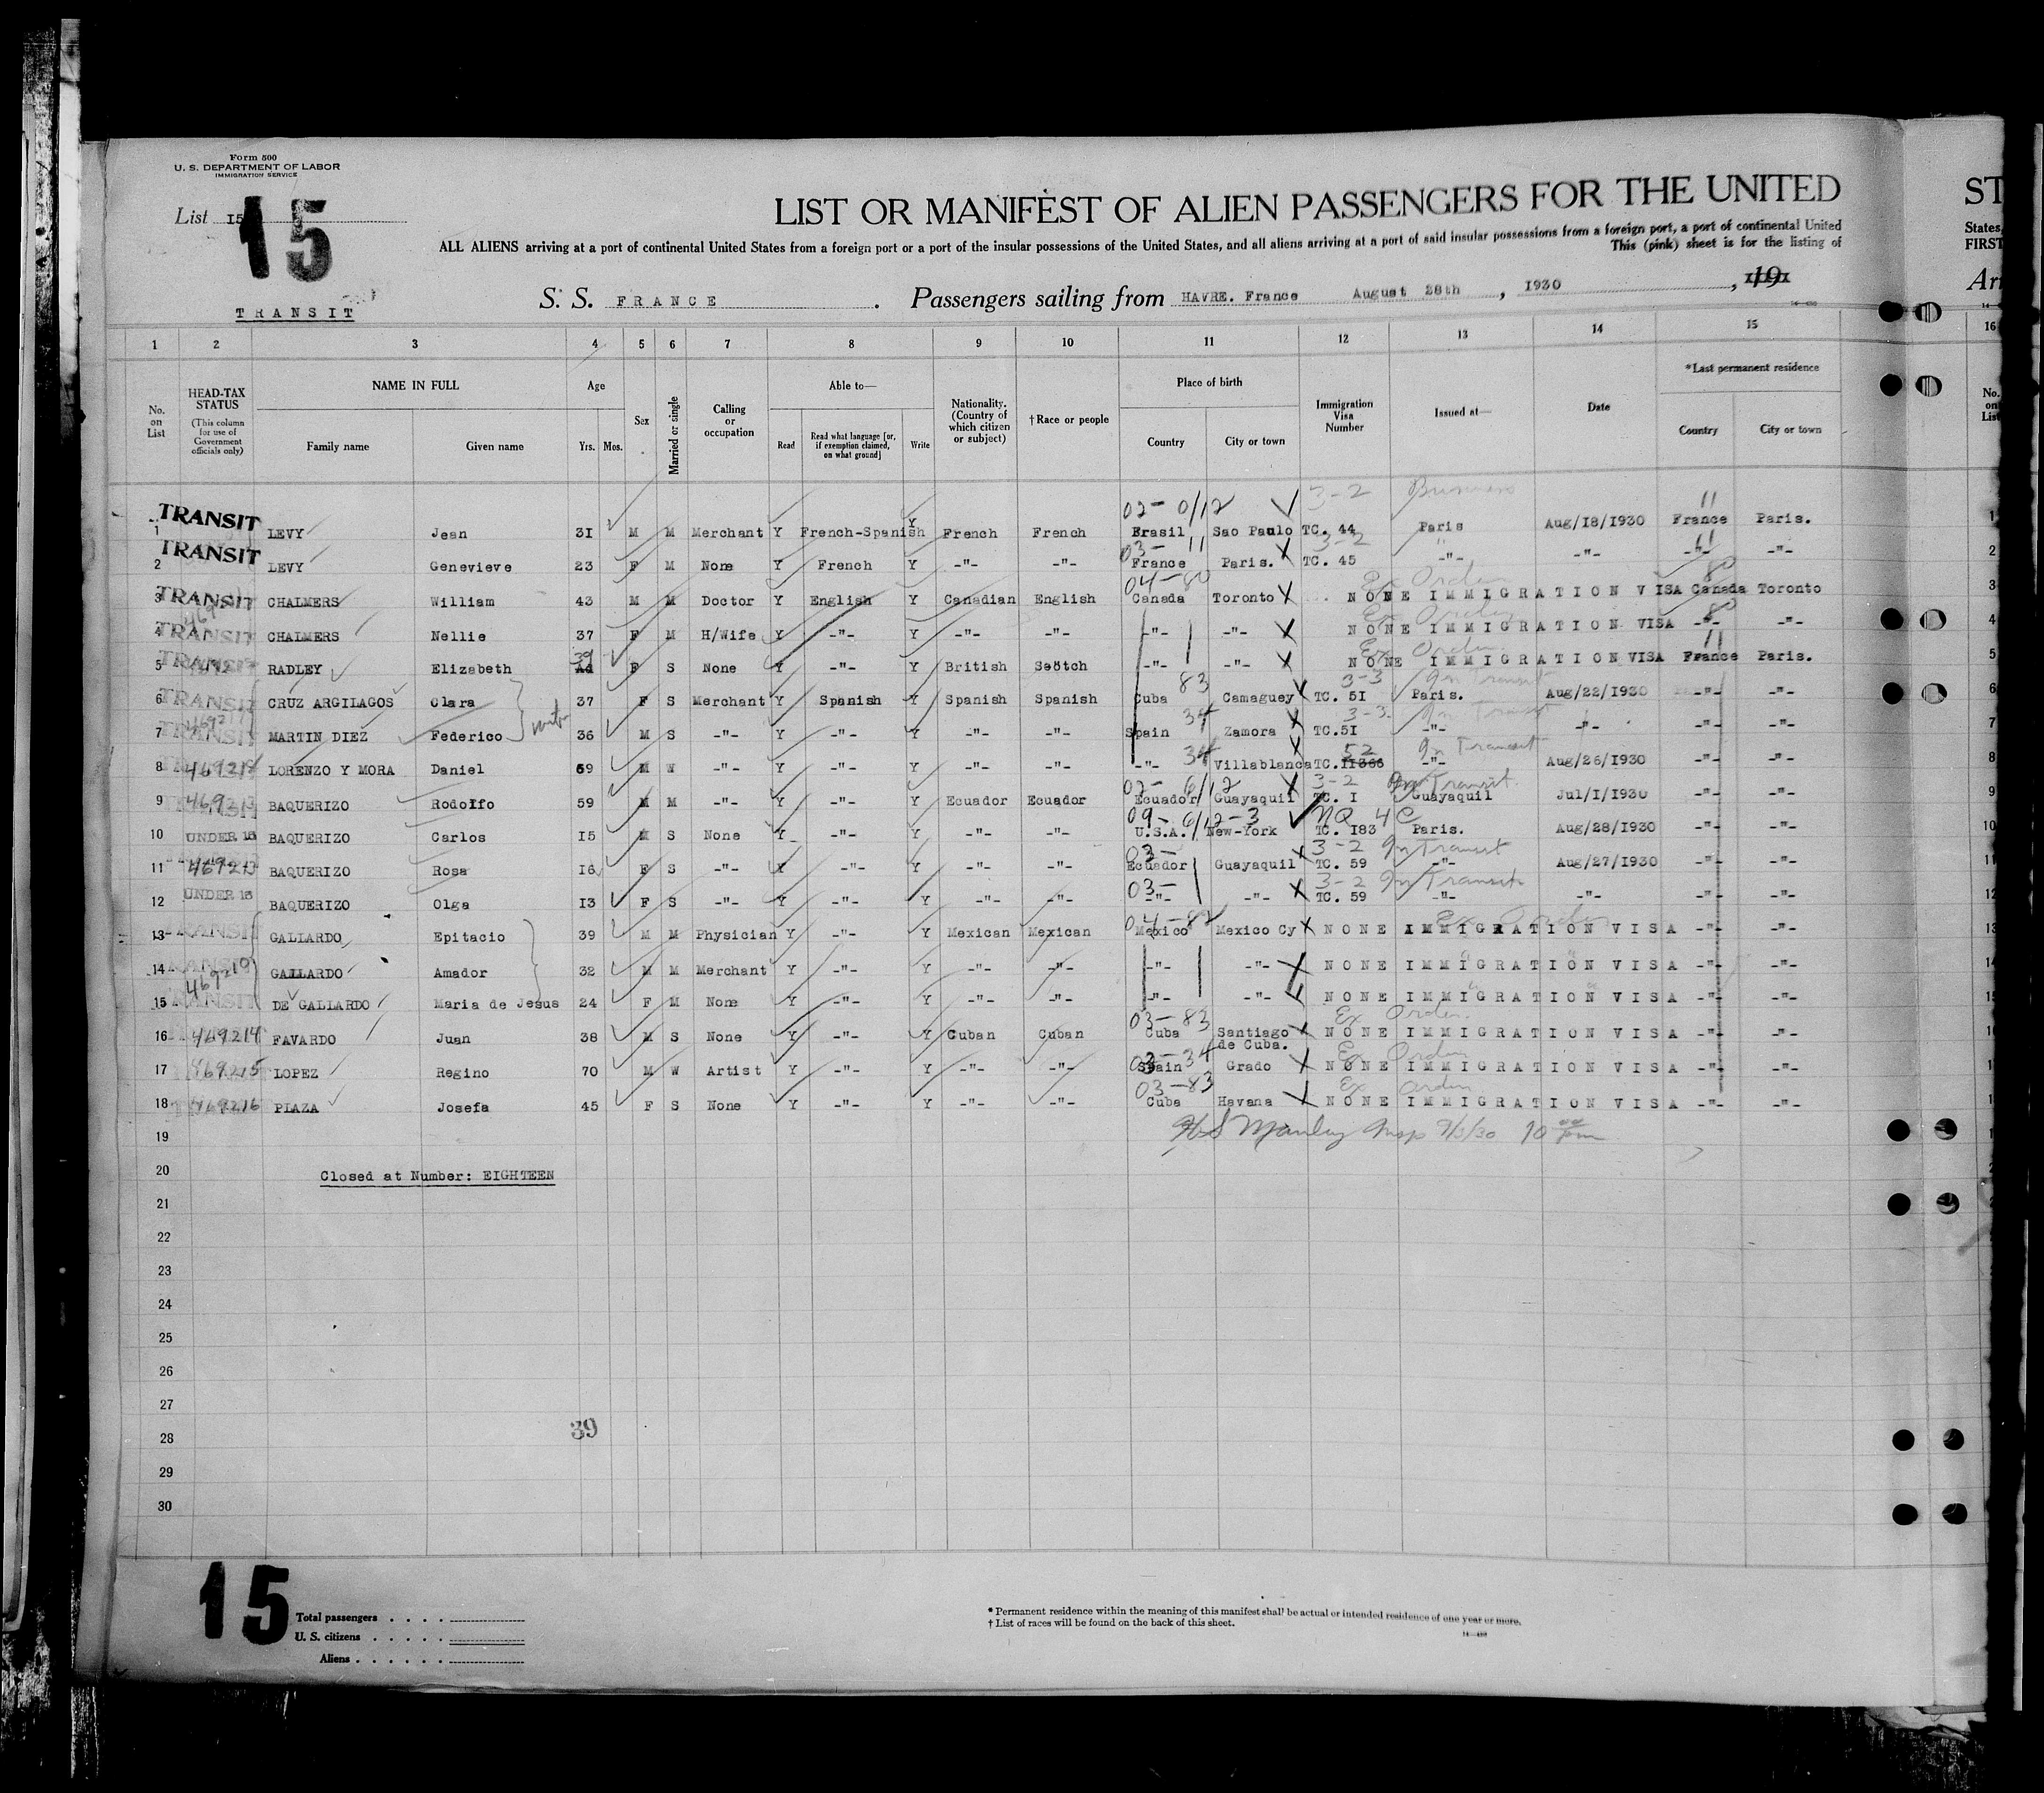 Form 500
U. S. DEPARTMENT OF LABOR
IMMIGRATION SERVICE
List 15
15
TRANSIT
LIST OR MANIFEST OF ALIEN PASSENGERS FOR THE UNITED
ST
ALL ALIENS arriving at a port of continental United States from a foreign port or a port of the insular possessions of the United States, and all aliens arriving at a port of said insular possessions from a foreign port, a port of continental United
States,
This (pink) sheet is for the listing of
FIRST
S. S. FRANCE. Passengers sailing from HAVRE. France August 28th, 1930, 19
1 2 3 4 5 6 7 8 9 10 11 12 13 14 15 16
No. on List
HEAD-TAX STATUS (This column for use of Government officials only)
NAME IN FULL Family name Given name
Age Yrs. Mos.
Sex
Married or single
Calling or occupation
Able to— Read Read what language [or, if exemption claimed, on what ground] Write
Nationality. (Country of which citizen or subject)
†Race or people
Place of birth Country City or town
Immigration Visa Number
Issued at—
Date
*Last permanent residence Country City or town
No. on List
02- 0/12 3-2 Business 11
1 TRANSIT LEVY Jean 31 M M Merchant Y French-Spanish Y French French Brasil Sao Paulo TC. 44 Paris Aug/18/1930 France Paris. 1
03- 11 3-2 " 11
2 TRANSIT LEVY Genevieve 23 F M None Y French Y -"- -"- France Paris. TC. 45 -"- -"- -"- -"- 2
04-80 Ex Order
3 TRANSIT CHALMERS William 43 M M Doctor Y English Y Canadian English Canada Toronto NONE IMMIGRATION VISA Canada Toronto 3
Ex Order
4 TRANSIT CHALMERS Nellie 37 F M H/Wife Y -"- Y -"- -"- -"- -"- NONE IMMIGRATION VISA -"- -"- 4
39 Ex Order 11
5 TRANSIT RADLEY Elizabeth F S None Y -"- Y British Scotch -"- -"- NONE IMMIGRATION VISA France Paris. 5
83 3-3 In Transit
6 TRANSIT CRUZ ARGILAGOS Clara 37 F S Merchant Y Spanish Y Spanish Spanish Cuba Camaguey TC. 51 Paris. Aug/22/1930 -"- -"- 6
34 3-3 In Transit
7 TRANSIT MARTIN DIEZ Federico 36 M S -"- Y -"- Y -"- -"- Spain Zamora TC.51 -"- -"- -"- -"- 7
34 52 In Transit
8 469218 LORENZO Y MORA Daniel 69 M W -"- Y -"- Y -"- -"- -"- Villablanca TC. 11366 -"- Aug/26/1930 -"- -"- 8
02- 6/12 3-2 In Transit
9 469213 BAQUERIZO Rodolfo 59 M M -"- Y -"- Y Ecuador Ecuador Ecuador Guayaquil TC. 1 Guayaquil Jul/1/1930 -"- -"- 9
09- 6/12-3 NQ 4C
10 UNDER 16 BAQUERIZO Carlos 15 M S None Y -"- Y -"- -"- U.S.A. New-York TC. 183 Paris. Aug/28/1930 -"- -"- 10
03- 3-2 In Transit
11 469213 BAQUERIZO Rosa 16 F S -"- Y -"- Y -"- -"- Ecuador Guayaquil TC. 59 -"- Aug/27/1930 -"- -"- 11
03- 3-2 In Transit
12 UNDER 16 BAQUERIZO Olga 13 F S -"- Y -"- Y -"- -"- -"- -"- TC. 59 -"- -"- -"- -"- 12
04-82 Ex Order
13 TRANSIT GALLARDO Epitacio 39 M M Physician Y -"- Y Mexican Mexican Mexico Mexico Cy NONE IMMIGRATION VISA -"- -"- 13
14 TRANSIT GALLARDO Amador 32 M M Merchant Y -"- Y -"- -"- -"- -"- NONE IMMIGRATION VISA -"- -"- 14
469210
15 TRANSIT DE GALLARDO Maria de Jesus 24 F M None Y -"- Y -"- -"- -"- -"- NONE IMMIGRATION VISA -"- -"- 15
03-83 Ex Order
16 469214 FAVARDO Juan 38 M S None Y -"- Y Cuban Cuban Cuba Santiago de Cuba. NONE IMMIGRATION VISA -"- -"-
03-34 Ex Order
17 469215 LOPEZ Regino 70 M W Artist Y -"- Y -"- -"- Spain Grado NONE IMMIGRATION VISA -"- -"-
03-83 Ex Order
18 469216 PLAZA Josefa 45 F S None Y -"- Y -"- -"- Cuba Havana NONE IMMIGRATION VISA -"- -"-
19 H S Manley Insp 9/3/30 10 00 pm
20 Closed at Number: EIGHTEEN
21
22
23
24
25
26
27
39
28
29
30
15
Total passengers
U. S. citizens
Aliens
* Permanent residence within the meaning of this manifest shall be actual or intended residence of one year or more.
† List of races will be found on the back of this sheet.